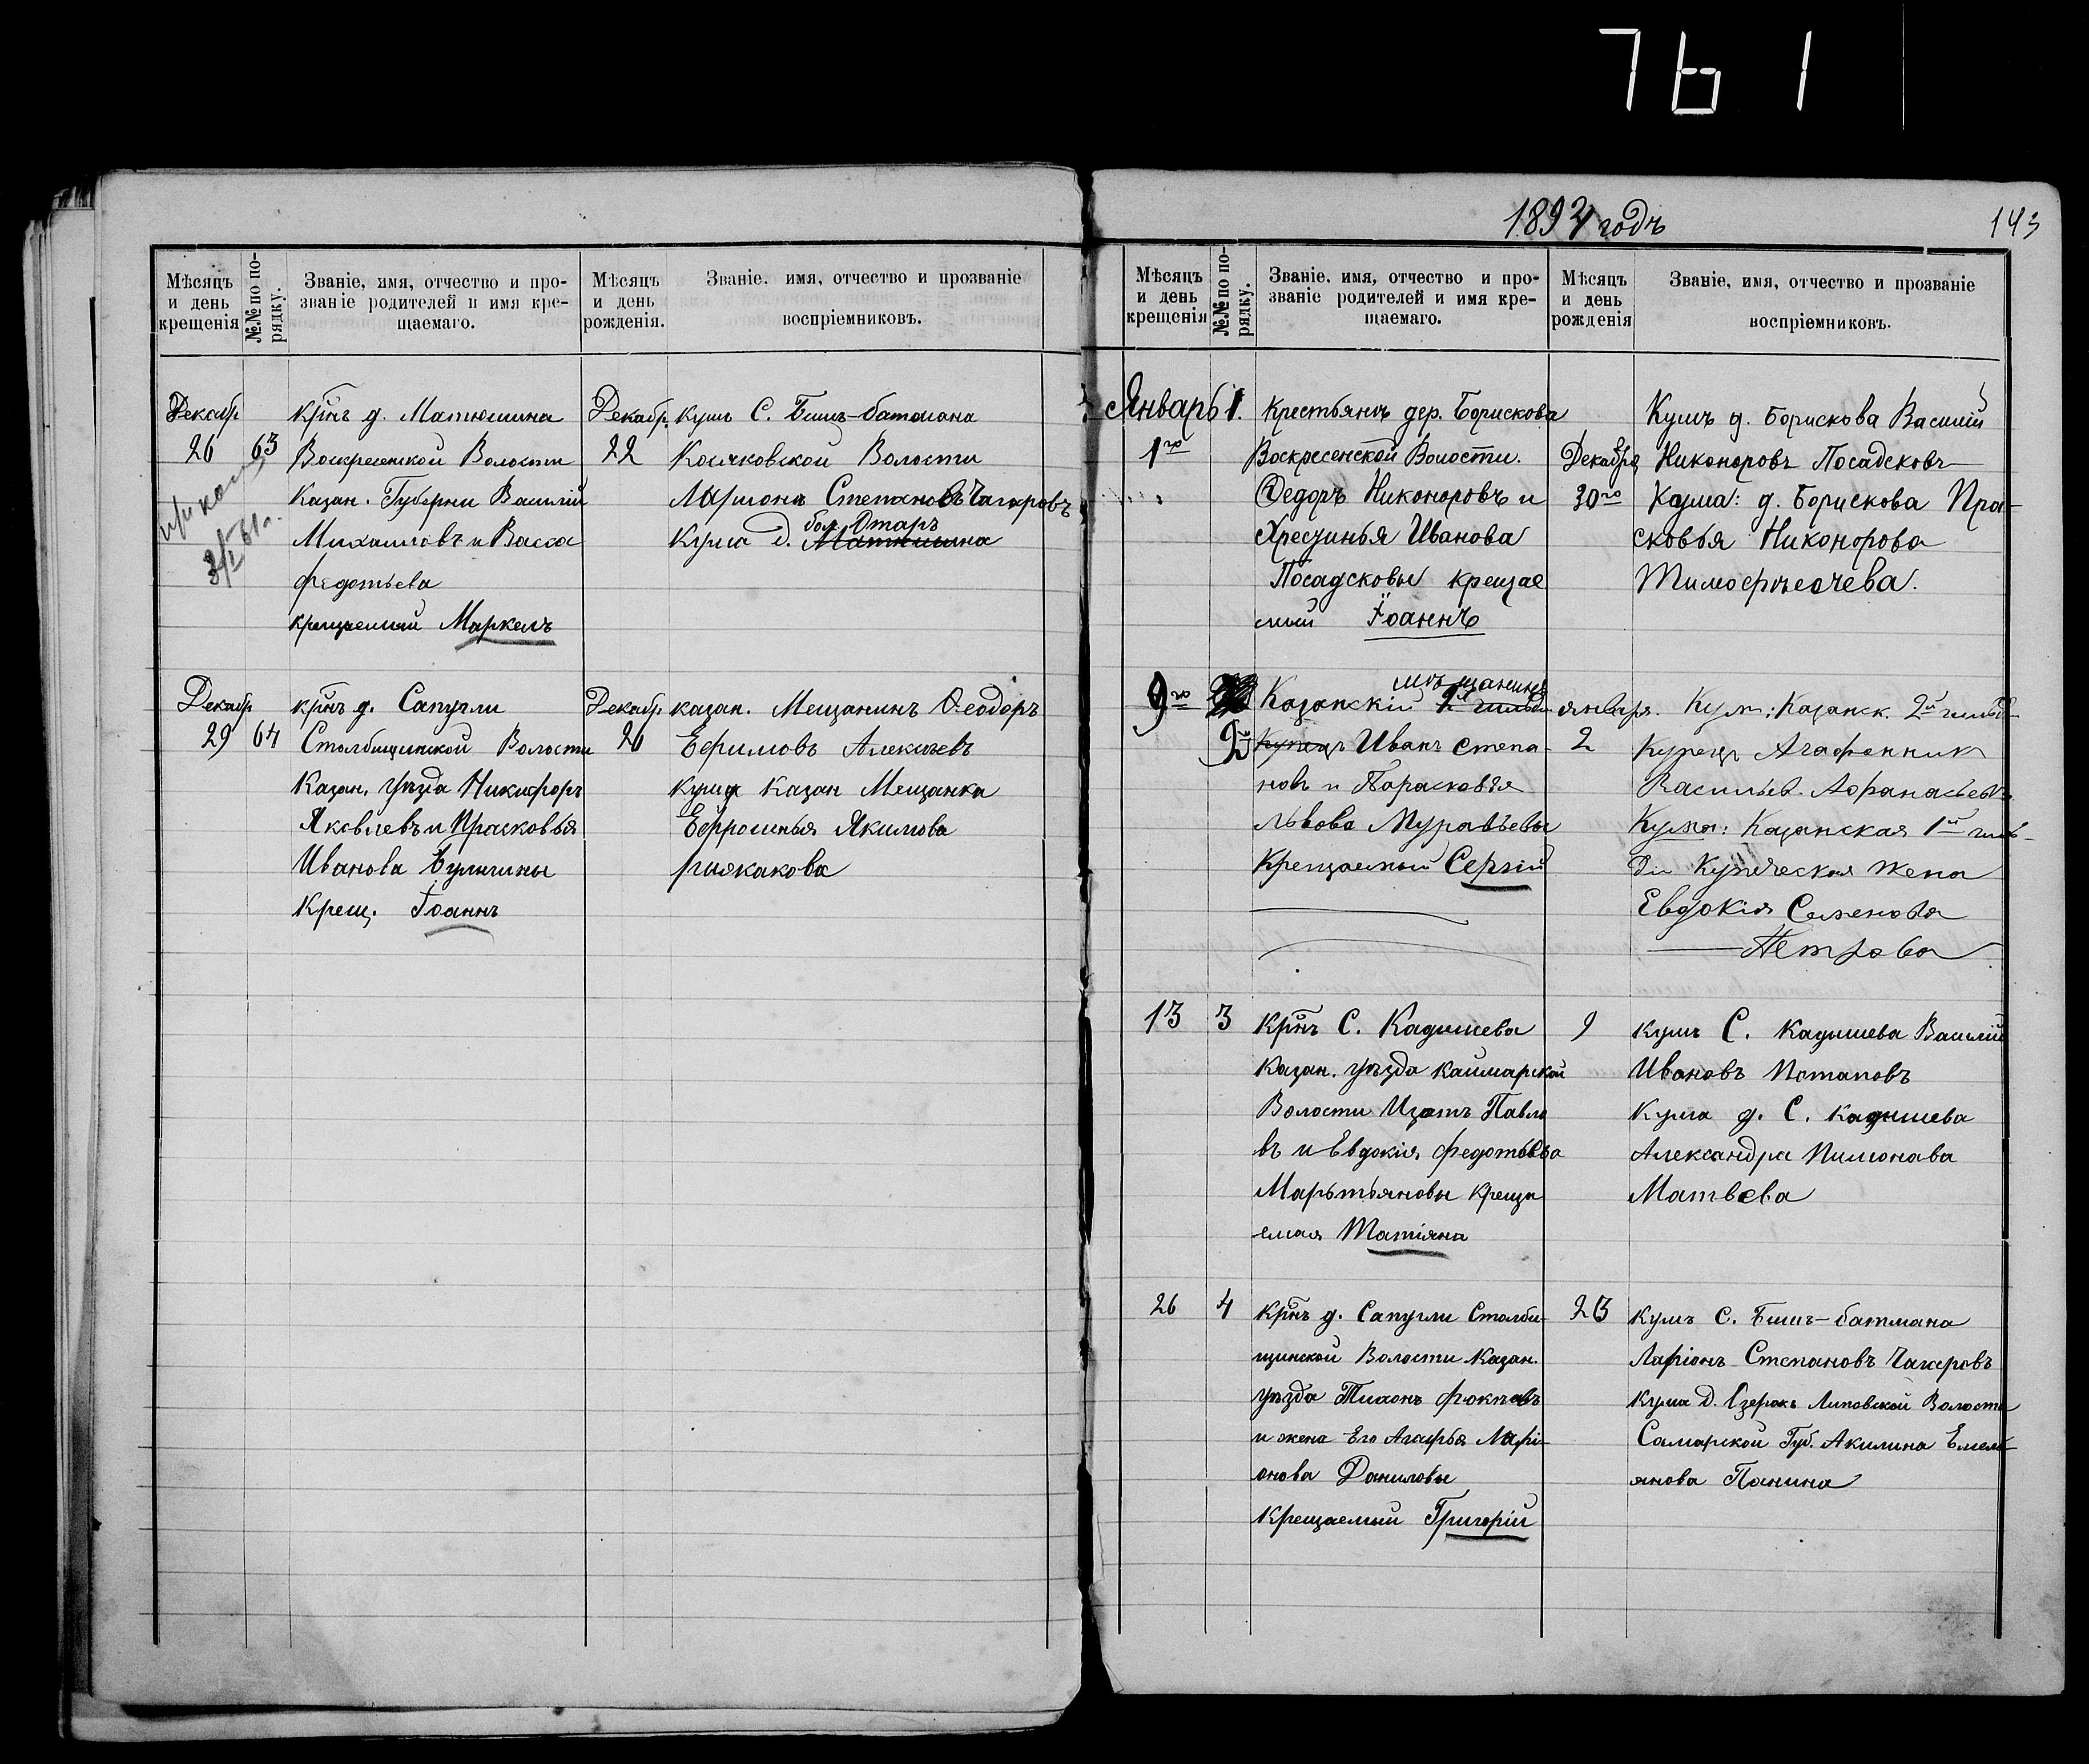 761
Мѣсяцъ и день крещенія
№№ по порядку.
Званіе, имя, отчество и про-
званіе родителей и имя кре-
щаемаго.
Мѣсяцъ и день рожденія.
Званіе, имя, отчество и прозваніе
воспріемниковъ.
Декабр
26
63
Крнъ д. Матюшина
Воскресенской Волости
Казан. Губерни Василій
Михаиловъ и Васса
Федотьева
крещаемый Маркелъ
3/I 61 г.
Декабр.
22
кумъ С. Бишъ-батмана
Косяковской Волости
Ларионъ Степановъ Чагаровъ
бол. Отаръ
Кума д. Матюшина
Декабр
29
64
крнъ д. Сапугли
Столбищинской Волости
Казан. Уѣзда Никифоръ
Яковлевъ и Прасковья
Иванова
Крещ. Іоаннъ
Декабр
26
казан. Мещанинъ Ѳеодоръ
Ефимовъ
кума Казан Мещанка
Ефросинья Якимова
1894 годъ
143
Мѣсяцъ и день крещенія
№№ по порядку.
Званіе, имя, отчество и про-
званіе родителей и имя кре-
щаемаго.
Мѣсяцъ и день рожденія
Званіе, имя, отчество и прозваніе
воспріемниковъ.
Январь
1го
1.
Крестьянъ дер. Борискова
Воскресенской Волости.
Федоръ Никоноровъ и
Хресинья Иванова
Посадсковы крещае
мый Іоаннъ
Декабря
30го
Кумъ д. Борискова Василій
Никоноровъ Посадсковъ
Кума: д. Борискова Пра-
сковья Никонорова
9го
2й
мѣщанинъ
Казанскій 2й гильдіи
купецъ Иванъ Степа-
новъ и Парасковія
Львова Муравьевы
Крещаемый Сергій
января.
2
Кум: Казанск. 2й гильд
Купецъ Агафонник
Васильев. Афанасьевъ
Кума: Казанская 1й гиль-
діи Купеческая жена
Евдокія Семенова
Петрова
13
3
Крнъ С. Кадышева
Казан. уѣзда Каймарской
Волости Изотъ Павло
въ и Евдокія Федотьева
Марьтьяновы Креща
емая Татіяна
9
кумъ С. Кадышева Василій
Ивановъ Потаповъ
Кума д. С. Кадышева
Александра Пимонава
Матвева
26
4
Крнъ д. Сапугли Столби-
щинской Волости Казан.
уѣзда Тихонъ
и жена Его Агафья Лари-
онова Даниловы
Крещаемый Григорій
23
Кумъ С. Бишъ-батмана
Ларіонъ Степановъ Чагаровъ
Кума Д. Озерокъ Липовской Волости
Самарской Губ. Акилина Емель-
янова Панина